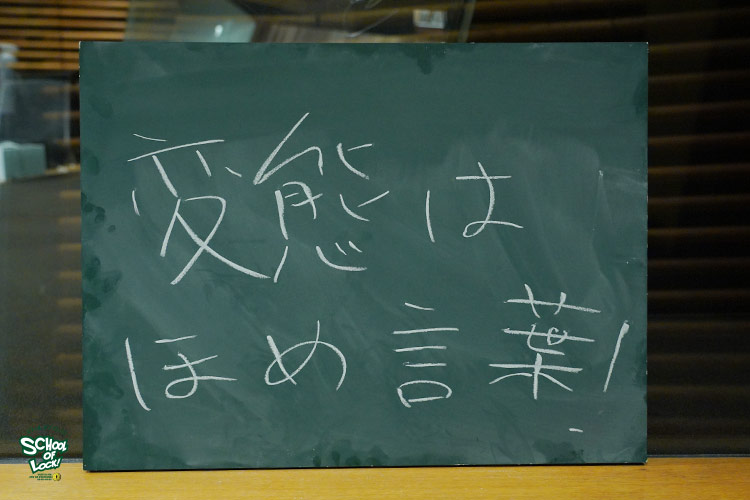 変態は
ほめ言葉!
SCHOOL
OF
LOCK!